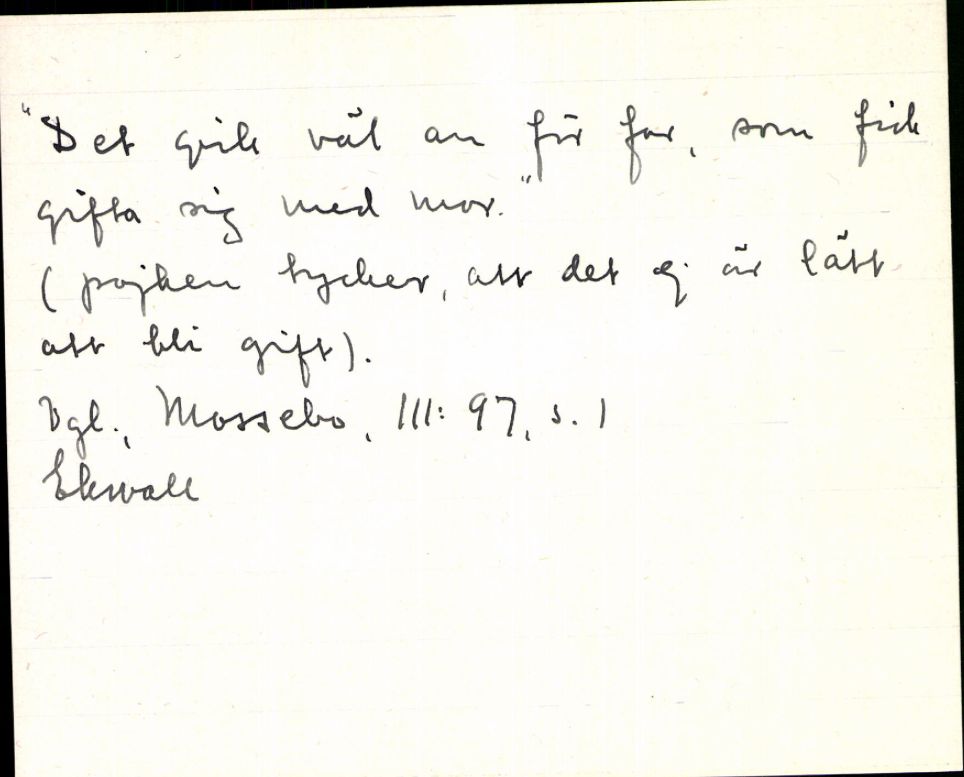 "Det gick väl an för far, som fick
gifta sig med mor."
(pojken tycker, att det ej är lätt
att bli gift).
Vgl., Mossebo, III: 97, s. 1
Ekwall